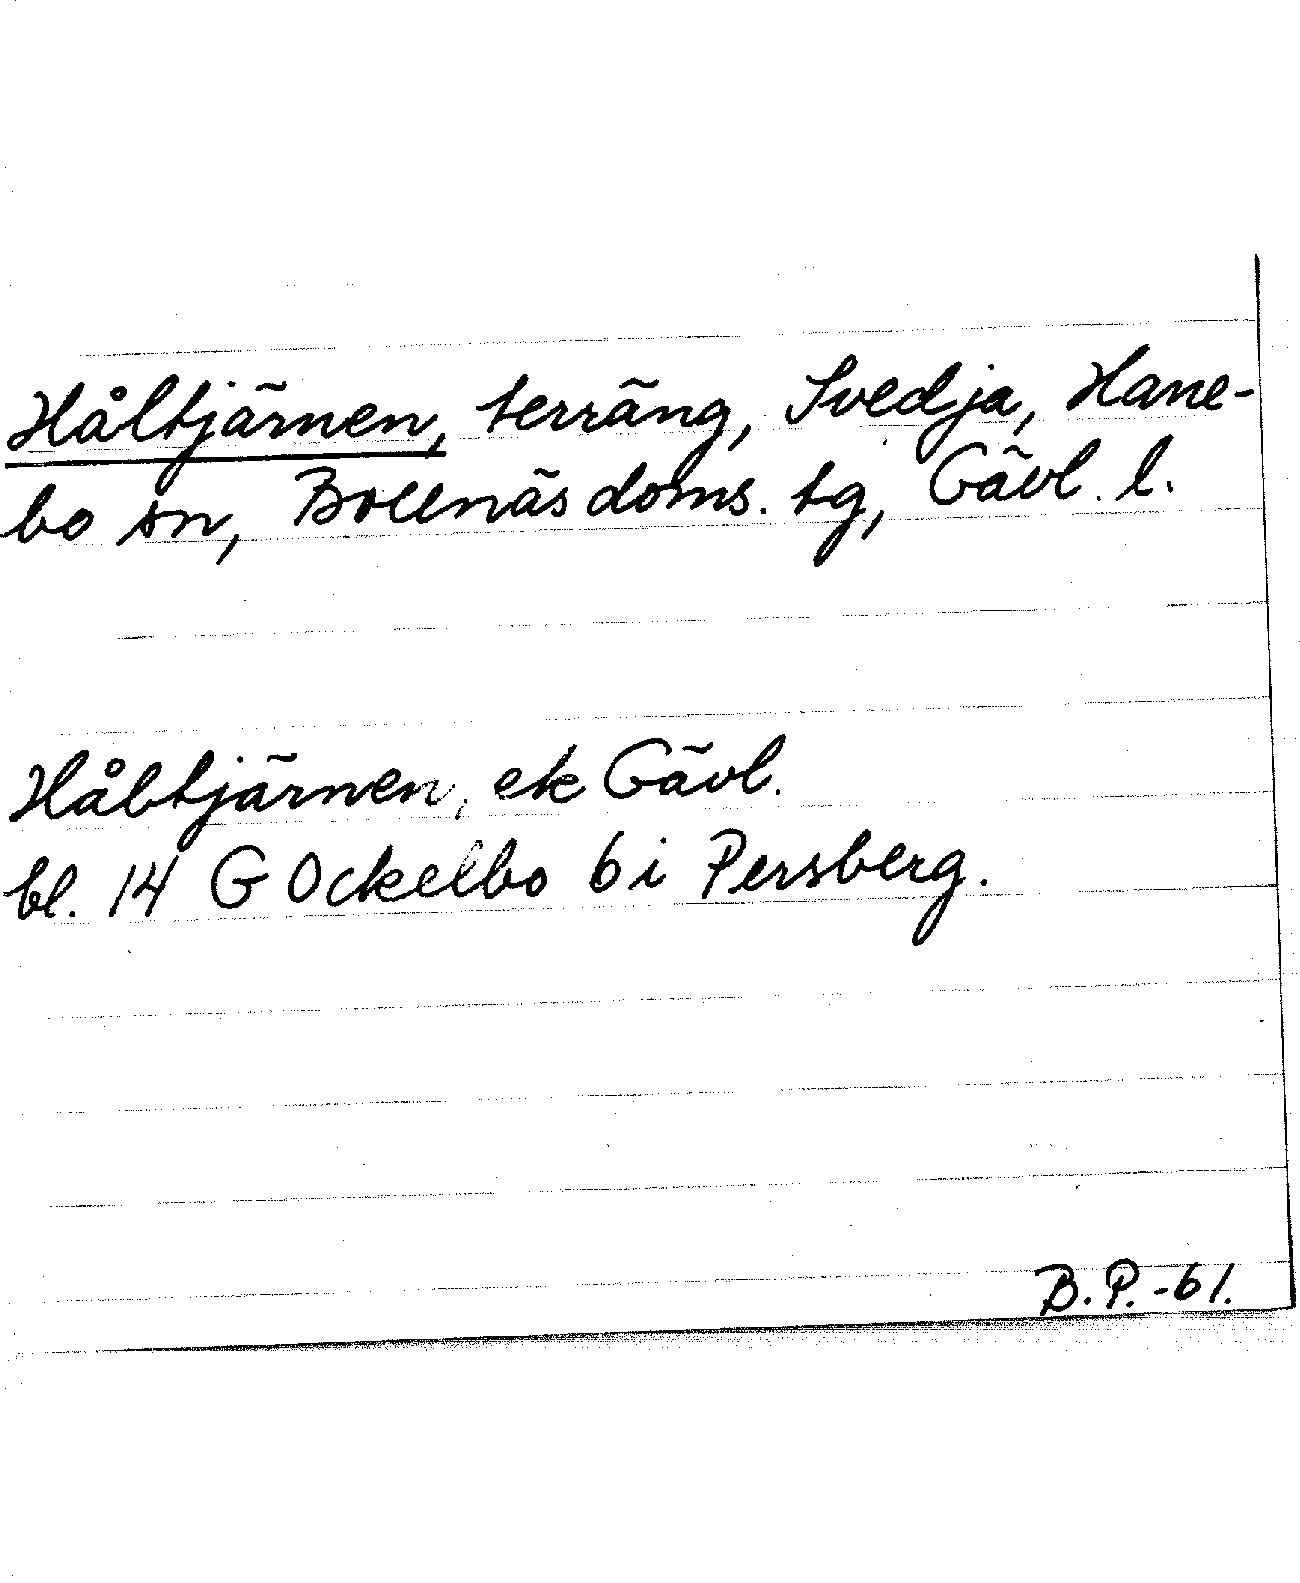 Håltjärnen, terräng, Svedja, Hane-
bo sn, Bollnäs doms. tg, Gävl. l.
Håbtjärnen, ek Gävl.
bl. 14 G Ockelbo 6 i Persberg.
B.P.-61.